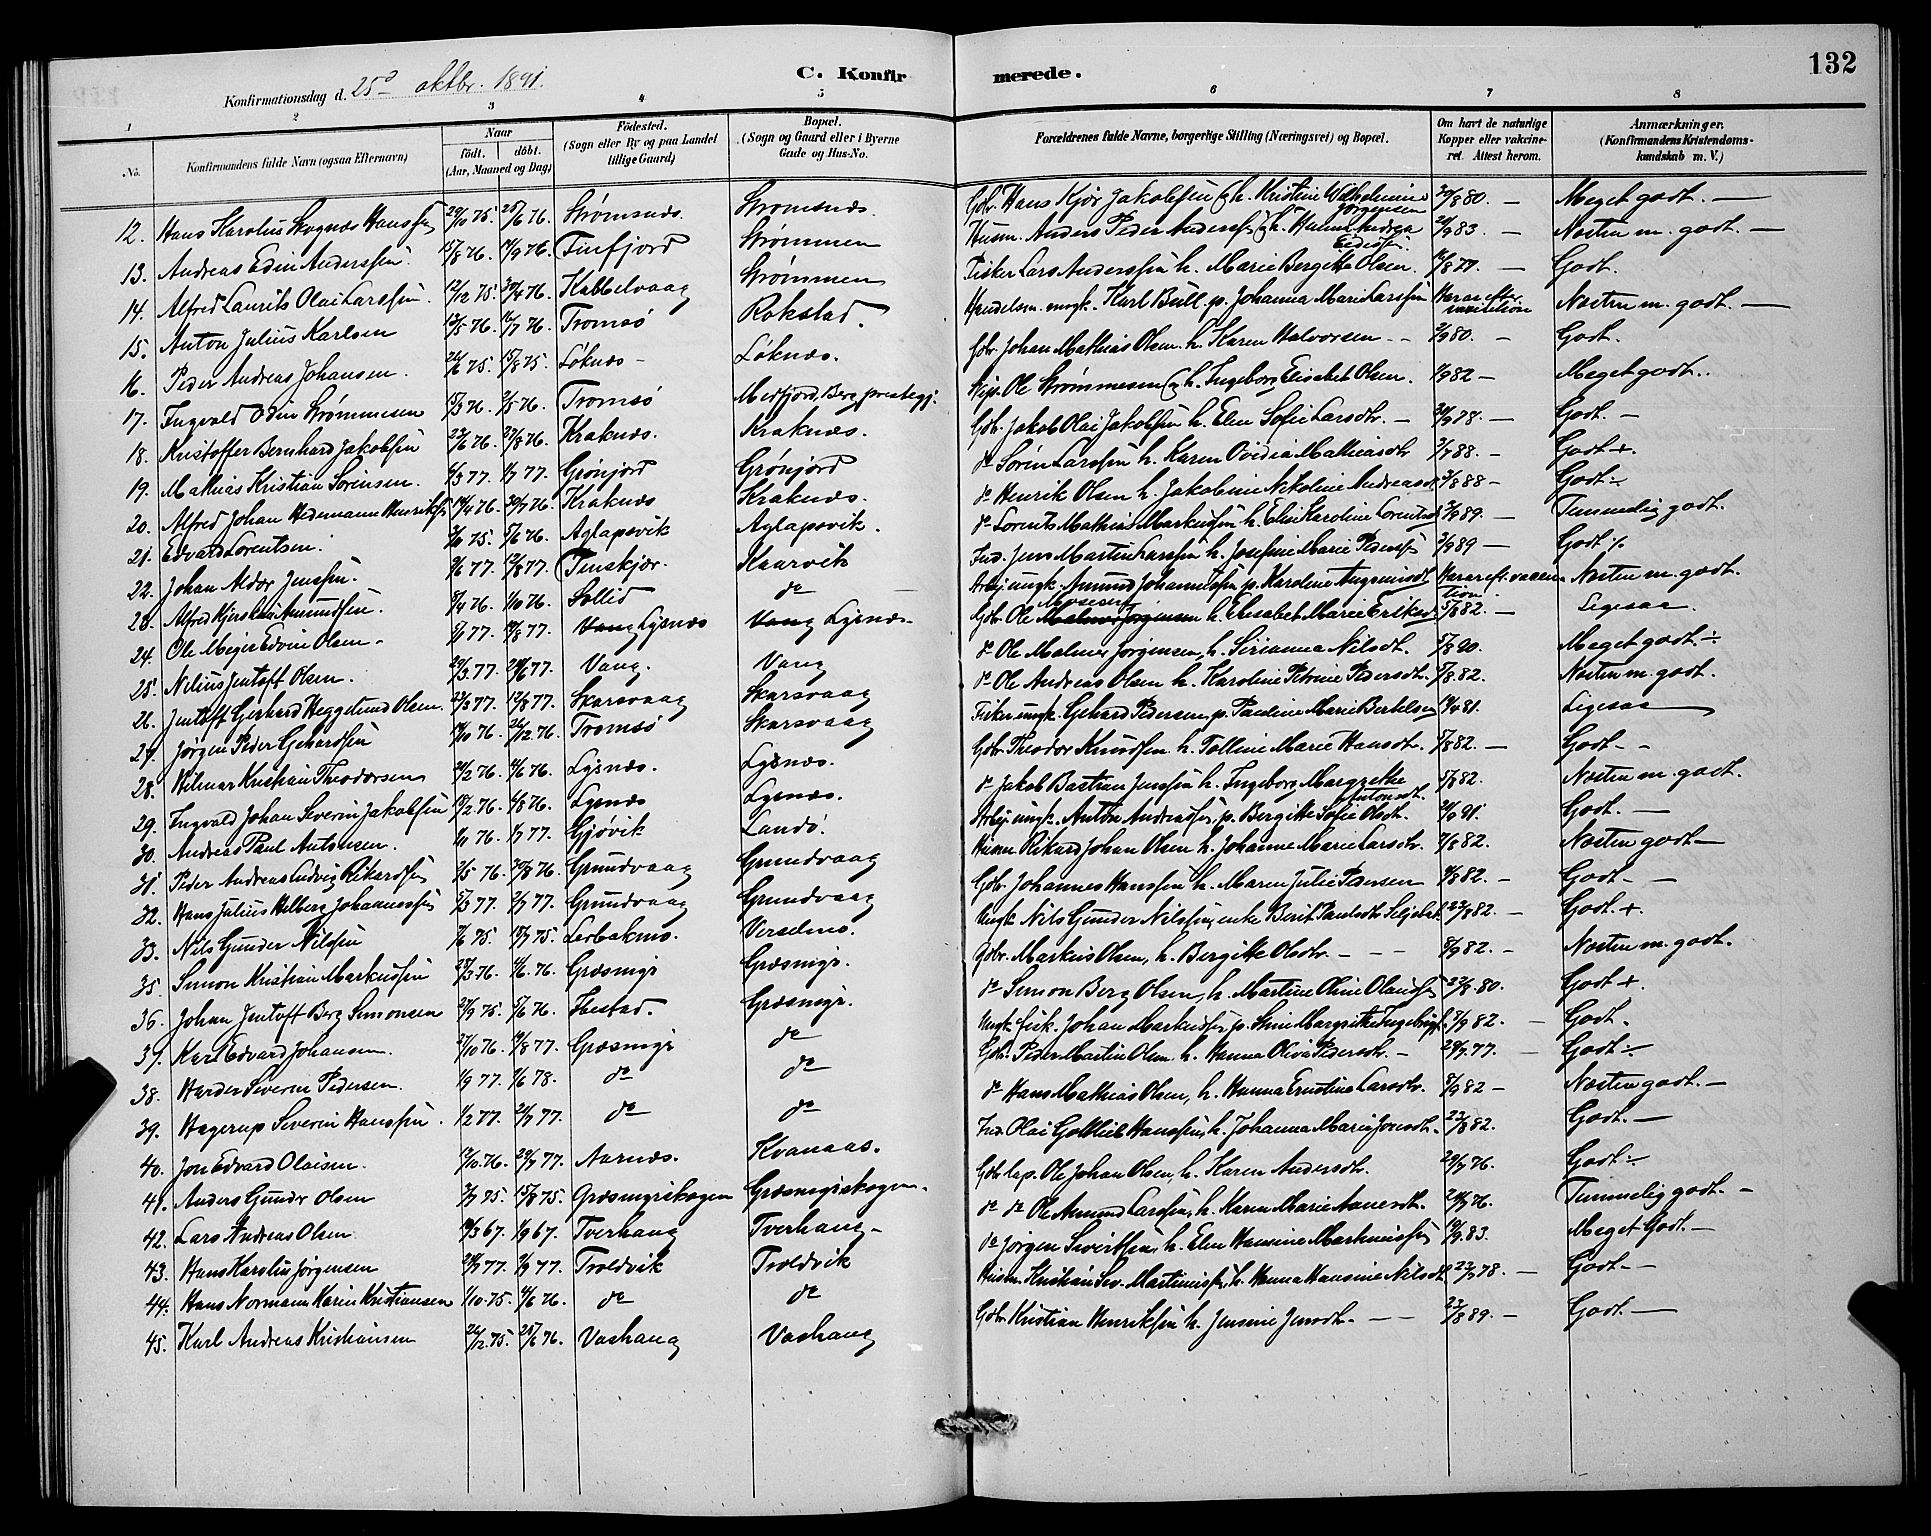 132
C. Konfirmerede.
Konfirmationsdag d. 25de oktbr. 1891.
1 2 3 4 5 6 7 8
No. Konfirmandens fulde Navn (ogsaa Efternavn) Naar födt. döbt. (Aar, Maaned og Dag) Födested. (Sogn eller By og paa Landet tillige Gaard) Bopæl. (Sogn og Gaard eller i Byerne Gade og Hus-No. Forældrenes fulde Navne, borgerlige Stilling (Næringsvei) og Bopæl. Om havt de naturlige Kopper eller vakcineret. Attest herom. Anmærkninger. (Konfirmandens Kristendomskundskab m. V.)
12. Hans Karolius Skognæs Hanssen 29/10 75. 25/6 76. Strømsnæs. Strømsnæs. Gbr. Hans Kjör Jakobsen og h. Kristine Wilhelmine Jørgensen 30/8 80. — Meget godt. —
13. Andreas Edin Anderssen. 15/8 76. 17/9 76. Finfjord Strømmen Husm. Anders Peder Anderssen og h. 20/9 83. — Næsten m. godt. —
14. Alfred Laurits Olai Larssen. 12/12 75. 30/4 76. Kabbelvaag Strømmen Fisker Lars Anderssen h. Marie Bergitte Olsen. — Godt.
15. Anton Julius Karlsen 16/7 76. Tromsö Rokstad. Handelsm. ungk. Karl Bull p. Johanna Marie Larssen Næsten m. godt. —
16. Peder Andreas Johansen. 15/8 75. Löknæs — Löknæs. Gbr. Johan Mathias Olsen. h. Karen Halvorsen — 80. — Godt.
17. Ingvald Odin Strømmesen Tromsö Medfjord, Berg prestegj. Ole Strømmesen og h. Ingeborg Elisabet Olsen. 82 — Meget godt.
18. Kristoffer Bernhard Jakobsen 23/6 76. 27/8 76. Kraknæs. Kraknæs. Gbr. Jakob Olai Jakobsen h. Elen Sofie Larsdtr. — 78. — Godt. —
19. Mathias Kristian Sörensen. 4/3 77. 1/7 77. Grönjord Grönjord do Sören Larssen h. Karen Ovidia Mathiasdtr 88. — Godt +.
20. Alfred Johan Hedemann Henriksen 14/4 76. 30/7 76. Kraknæs Kraknæs. do Henrik Olsen h. Jakobine Nikoline Andreasdt. 88 — Godt ÷
21. Edvard Lorentsen. 5/6 76. Aglapsvik Aglapsvik. do Lorents Mathias Markussen h. Eline Karoline Lorentsd. 89. — Temmelig godt.
22. Johan Aldor Jenssen. 12/8 77. Finskjær. Kaarvik Ind. Jens Martin Larssen h. Josefine Marie Pederssen 89 — Godt ÷.
23. Alfred Kjerskau Amundsen. 5/4 76. 1/10 76. Sollid do Arbj. ungk. Amund Johannessen p. Karoline Næsten m. godt.
24. Ole Meyer Edvin Olsen. 19/8 77. Vang Lysnæs Vang Lysnæs — Gbr. Ole h. Elisabet Marie Eriksd. 5/8 82. — Ligesaa —
25. Nelius Jentoft Olsen. 29/3 77. 24/6 77. Vang. Vang do Ole Malmer Jørgensen, h. Sirianna Nilsdt. 90. Meget godt. ÷
26. Jentoft Gerhard Heggelund Olsen 23/3 77. 12/8 77. Skarsvaag Skarsvaag do Ole Andreas Olsen h. Karoline Petrine Pedersdt. 5/8 82. Næsten m. godt.
27. Jørgen Peder Gerhardsen 26/12 76. Tromsö Skarsvaag Fisker ungk. Gehard Pedersen, p. Pauline Marie Bertelsen 81. Ligesaa
28. Hilmar Kristian Theodorsen 4/6 76. Lysnæs. Lysnæs. Gbr. Theodor Knudsen h. Tolline Marie Hansdt. 5/8 82. — Godt. —
29. Ingvald Johan Severin Jakobsen 4/8 76. Lysnæs Lysnæs. do Jakob Bastian Jenssen h. Ingeborg Margrethe Antonsdt. 5/8 82. Næsten m. godt.
30. Andreas Paul Antonsen. 1/7 77. Gjövik Landö. Arbj. ungk. Anton Anderssen, p. Bergitte Sofie Olsdt. 91. Godt. —
31. Peder Andreas Ludvig Rikardsen 2/5 76. 20/8 76. Grundvaag Grundvaag Husm Rikard Johan Olsen h. Johanne Marie Larsdtr. 82. Næsten godt —
32. Hans Julius Helberg Johannessen 5/3 77. 2/7 77. Grundvaag Grundvaag Gbr. Johannes Hanssen h. Maren Julie Pedersen 82. — Godt. —
33. Nils Gunder Nilssen 75. 18/7 75. Lerbakmo. Verselmo. Ungk. Nils Gunder Nilssen, enke Berit Paulsdtr 23/8 82. — Godt. +.
35. Simon Kristian Markussen 28/3 76. 4/6 76. Græsmyr Græsmyr. Gbr. Markus Olsen, h. Bergitte Olsdtr. — — — 8/9 82. — Næsten m. godt.
36. Johan Jentoft Berg Simonsen 5/6 76. Ibestad. Græsmyr. do Simon Berg Olsen, h. Martine Oline Olaussen 23/8 80. Godt +.
37. Karl Edvard Johansen. 27/10 76. 19/8 77. Græsmyr do Ungk. fisk. Johan Markussen, p. Stine Margrethe Ingebrigt. 8/9 82. — Godt.
38. Harder Severin Pedersen. 1/9 77. 1/6 78. do do Gbr. Peder Martin Olsen. h. Hanna Olivia Pedersdtr. — 29/7 77. — Godt ÷
39. Hagerup Severin Hanssen. 1/2 77. 77. do do do Hans Mathias Olsen, h. Hanna Ernstina Larsdtr. 8/9 82 — Næsten godt. —
40. Jon Edvard Olaisen. 17/10 76. 29/7 77. Aarnæs. Kvanaas. Ind. Olai Gottlieb Hanssen, h. Johanna Marie Jonsdt. 23/8 82. Godt. —
41. Anders Gunder Olsen 75. 15/8 75. Græsmyrskogen Græsmyrskogen. Gbr lap. Ole Johan Olsen, h. Karen Andersdt. 29/7 76. Godt ÷
42. Lars Andreas Olsen 67. 1/9 67. Tverhaug Tverhaug — do do Ole Amund Larssen, h. Karen Marie 76. Temmelig godt. —
43. Hans Karolius Jørgensen 77. Troldvik Troldvik do Jørgen Sivertsen, h. Elen Hansine Markussen 83. Meget Godt. —
44. Hans Normann Karin Kristiansen 1/10 75. 4/6 76. do do Husm. Kristian Sev. Martinussen, h. Hanna Hansine Nilsdt 78. — Godt. —
45. Karl Andreas Kristiansen 26/12 75. 25/6 76. Vashaug Vashaug Gbr. Kristian Henriksen h. Jensine Jensdt. — — 23/8 89. — Godt. —